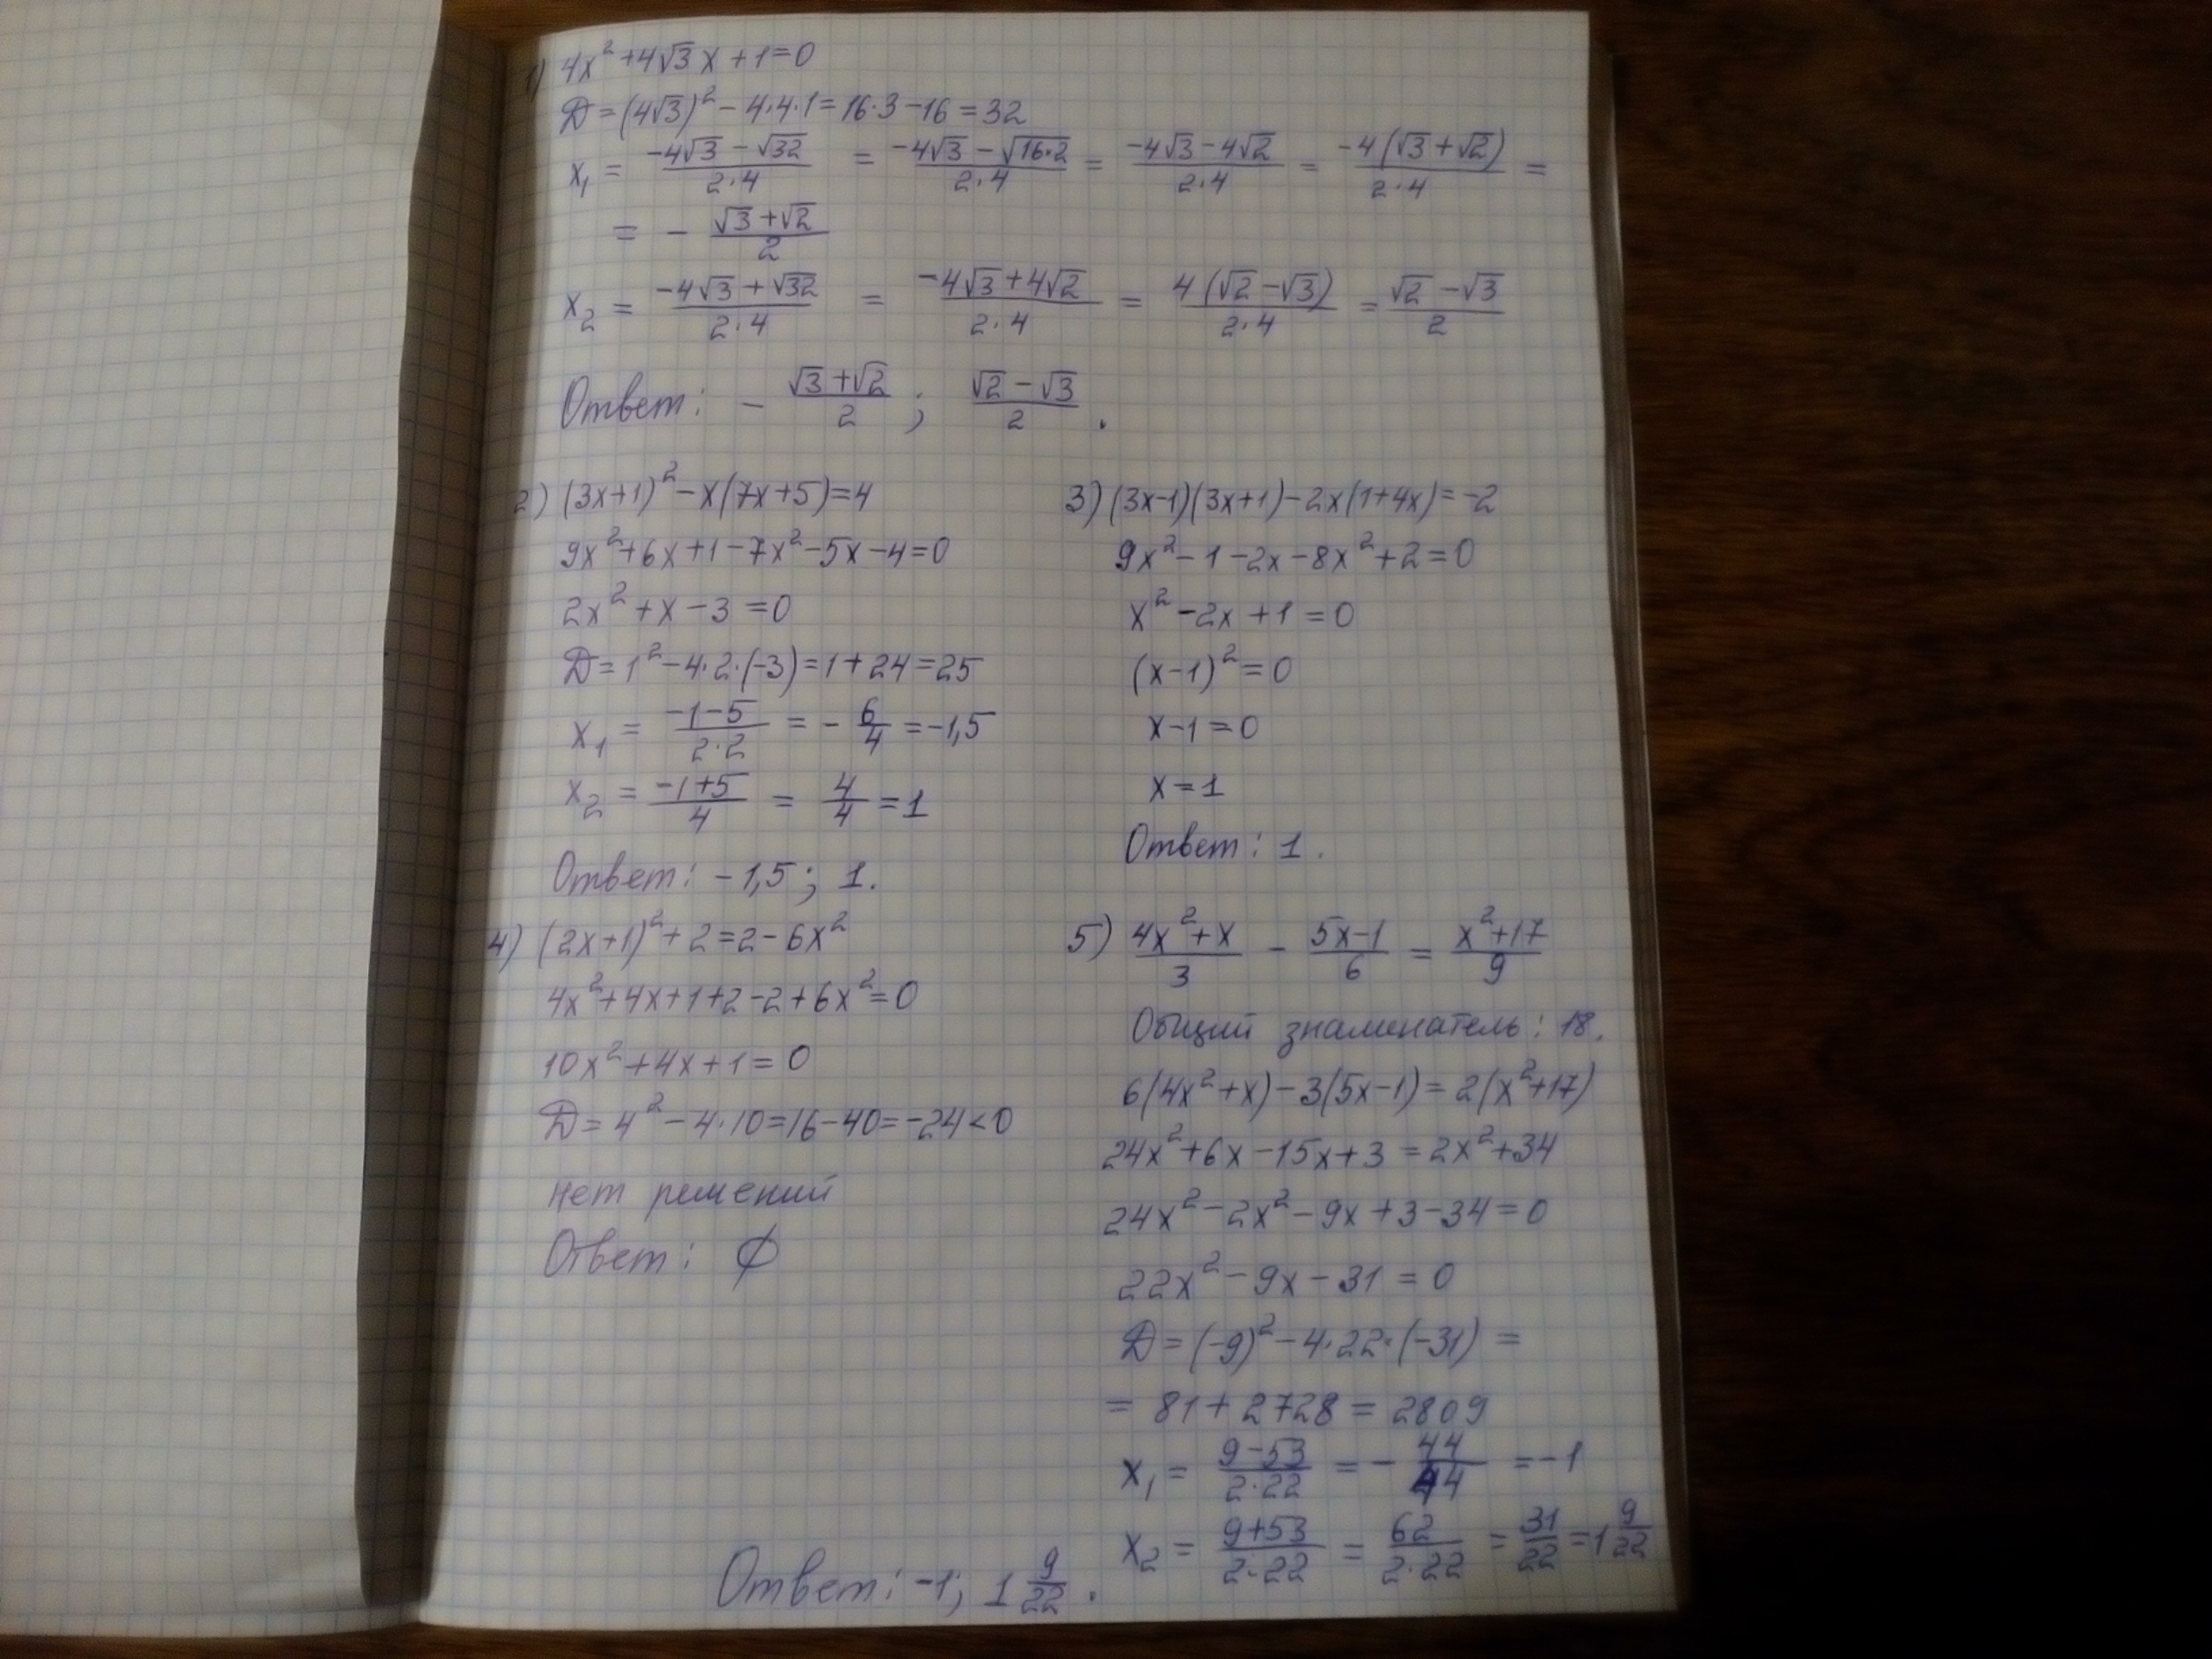 1) 4x² + 4√3 x + 1 = 0
D = (4√3)² - 4·4·1 = 16·3 - 16 = 32
x₁ = (-4√3 - √32)/(2·4) = (-4√3 - √(16·2))/(2·4) = (-4√3 - 4√2)/(2·4) = (-4(√3 + √2))/(2·4) =
= - (√3 + √2)/2
x₂ = (-4√3 + √32)/(2·4) = (-4√3 + 4√2)/(2·4) = (4(√2 - √3))/(2·4) = (√2 - √3)/2
Ответ: - (√3 + √2)/2 ; (√2 - √3)/2 .
2) (3x+1)² - x(7x+5) = 4
9x² + 6x + 1 - 7x² - 5x - 4 = 0
2x² + x - 3 = 0
D = 1² - 4·2·(-3) = 1 + 24 = 25
x₁ = (-1-5)/(2·2) = - 6/4 = -1,5
x₂ = (-1+5)/4 = 4/4 = 1
Ответ: -1,5 ; 1.
3) (3x-1)(3x+1) - 2x(1+4x) = -2
9x² - 1 - 2x - 8x² + 2 = 0
x² - 2x + 1 = 0
(x-1)² = 0
x - 1 = 0
x = 1
Ответ: 1 .
4) (2x+1)² + 2 = 2 - 6x²
4x² + 4x + 1 + 2 - 2 + 6x² = 0
10x² + 4x + 1 = 0
D = 4² - 4·10 = 16 - 40 = -24 < 0
нет решений
Ответ: ∅
5) (4x² + x)/3 - (5x-1)/6 = (x² + 17)/9
Общий знаменатель: 18.
6(4x² + x) - 3(5x-1) = 2(x² + 17)
24x² + 6x - 15x + 3 = 2x² + 34
24x² - 2x² - 9x + 3 - 34 = 0
22x² - 9x - 31 = 0
D = (-9)² - 4·22·(-31) =
= 81 + 2728 = 2809
x₁ = (9-53)/(2·22) = - 44/44 = -1
x₂ = (9+53)/(2·22) = 62/(2·22) = 31/22 = 1 9/22
Ответ: -1; 1 9/22 .